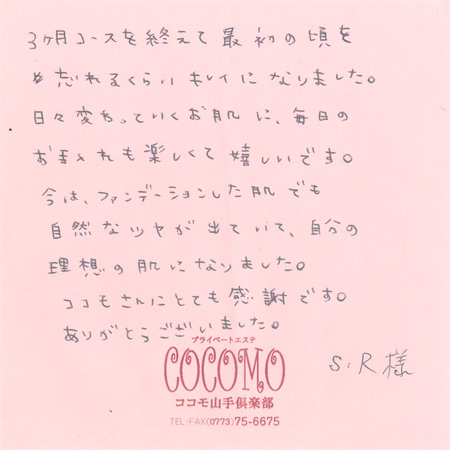 3ヶ月コースを終えて最初の頃を
忘れるくらいキレイになりました。
日々変わっていくお肌に、毎日の
お手入れも楽しくて嬉しいです。
今は、ファンデーションした肌でも
自然なツヤが出ていて、自分の
理想の肌になりました。
ココモさんにとても感謝です。
ありがとうございました。
プライベートエステ
COCOMO
ココモ山手倶楽部
TEL・FAX(0773)75-6675
S.R様